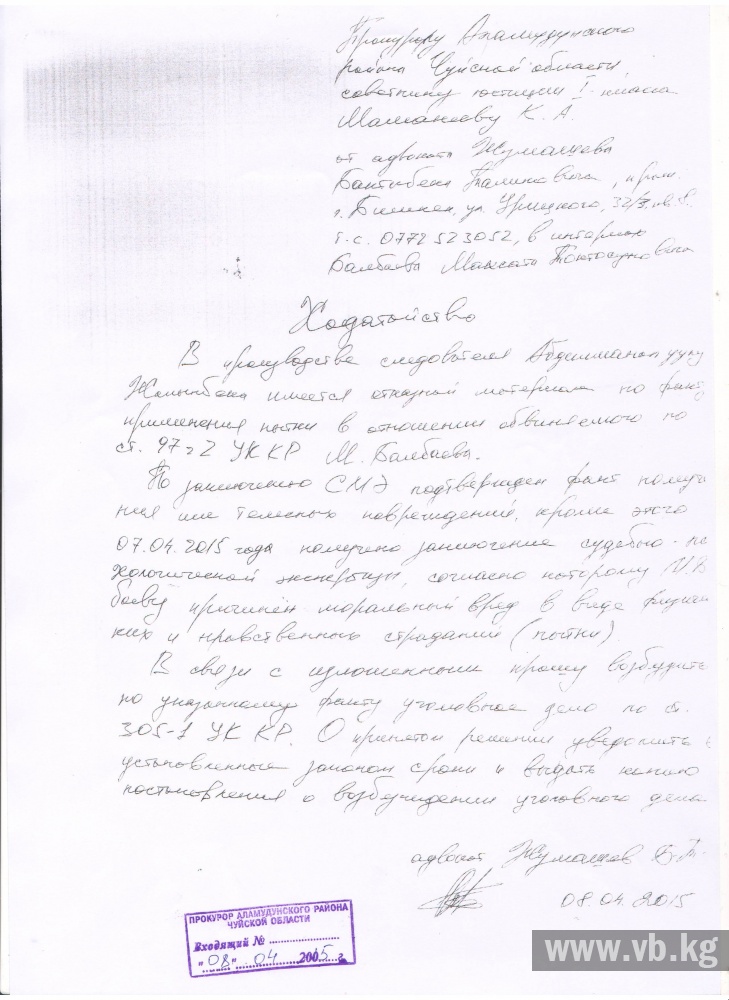 Прокурору Аламудунского
района Чуйской области,
советнику юстиции I класса
К. А.
от адвоката Жумашева
Бактыбека, прож.
г. Бишкек, ул. Урицкого, 32/3, кв. 8.
т.с. 0772 523052, в интересах
Балбаева Максата Токтосуновича
Ходатайство
В производстве следователя
имеется отказной материал по факту
применения пытки в отношении обвиняемого по
ст. 97 ч 2 УК КР М. Балбаева.
По заключению СМЭ подтвержден факт получе
ния им телесных повреждений, кроме этого
07.04.2015 года получено заключение судебно-пс
хологической экспертизы, согласно которому М.Б
баеву причинён моральный вред в виде физич
ких и нравственных страданий (пытки).
В связи с изложенным прошу возбудить
по указанному факту уголовное дело по ст.
305-1 УК КР. О принятом решении уведомить в
установленные законом сроки и выдать копию
постановления о возбуждении уголовного дела
адвокат Жумашев Б.Т.
08.04.2015
ПРОКУРОР АЛАМУДУНСКОГО РАЙОНА
ЧУЙСКОЙ ОБЛАСТИ
Входящий №
"08" 04 2005 г.
www.vb.kg